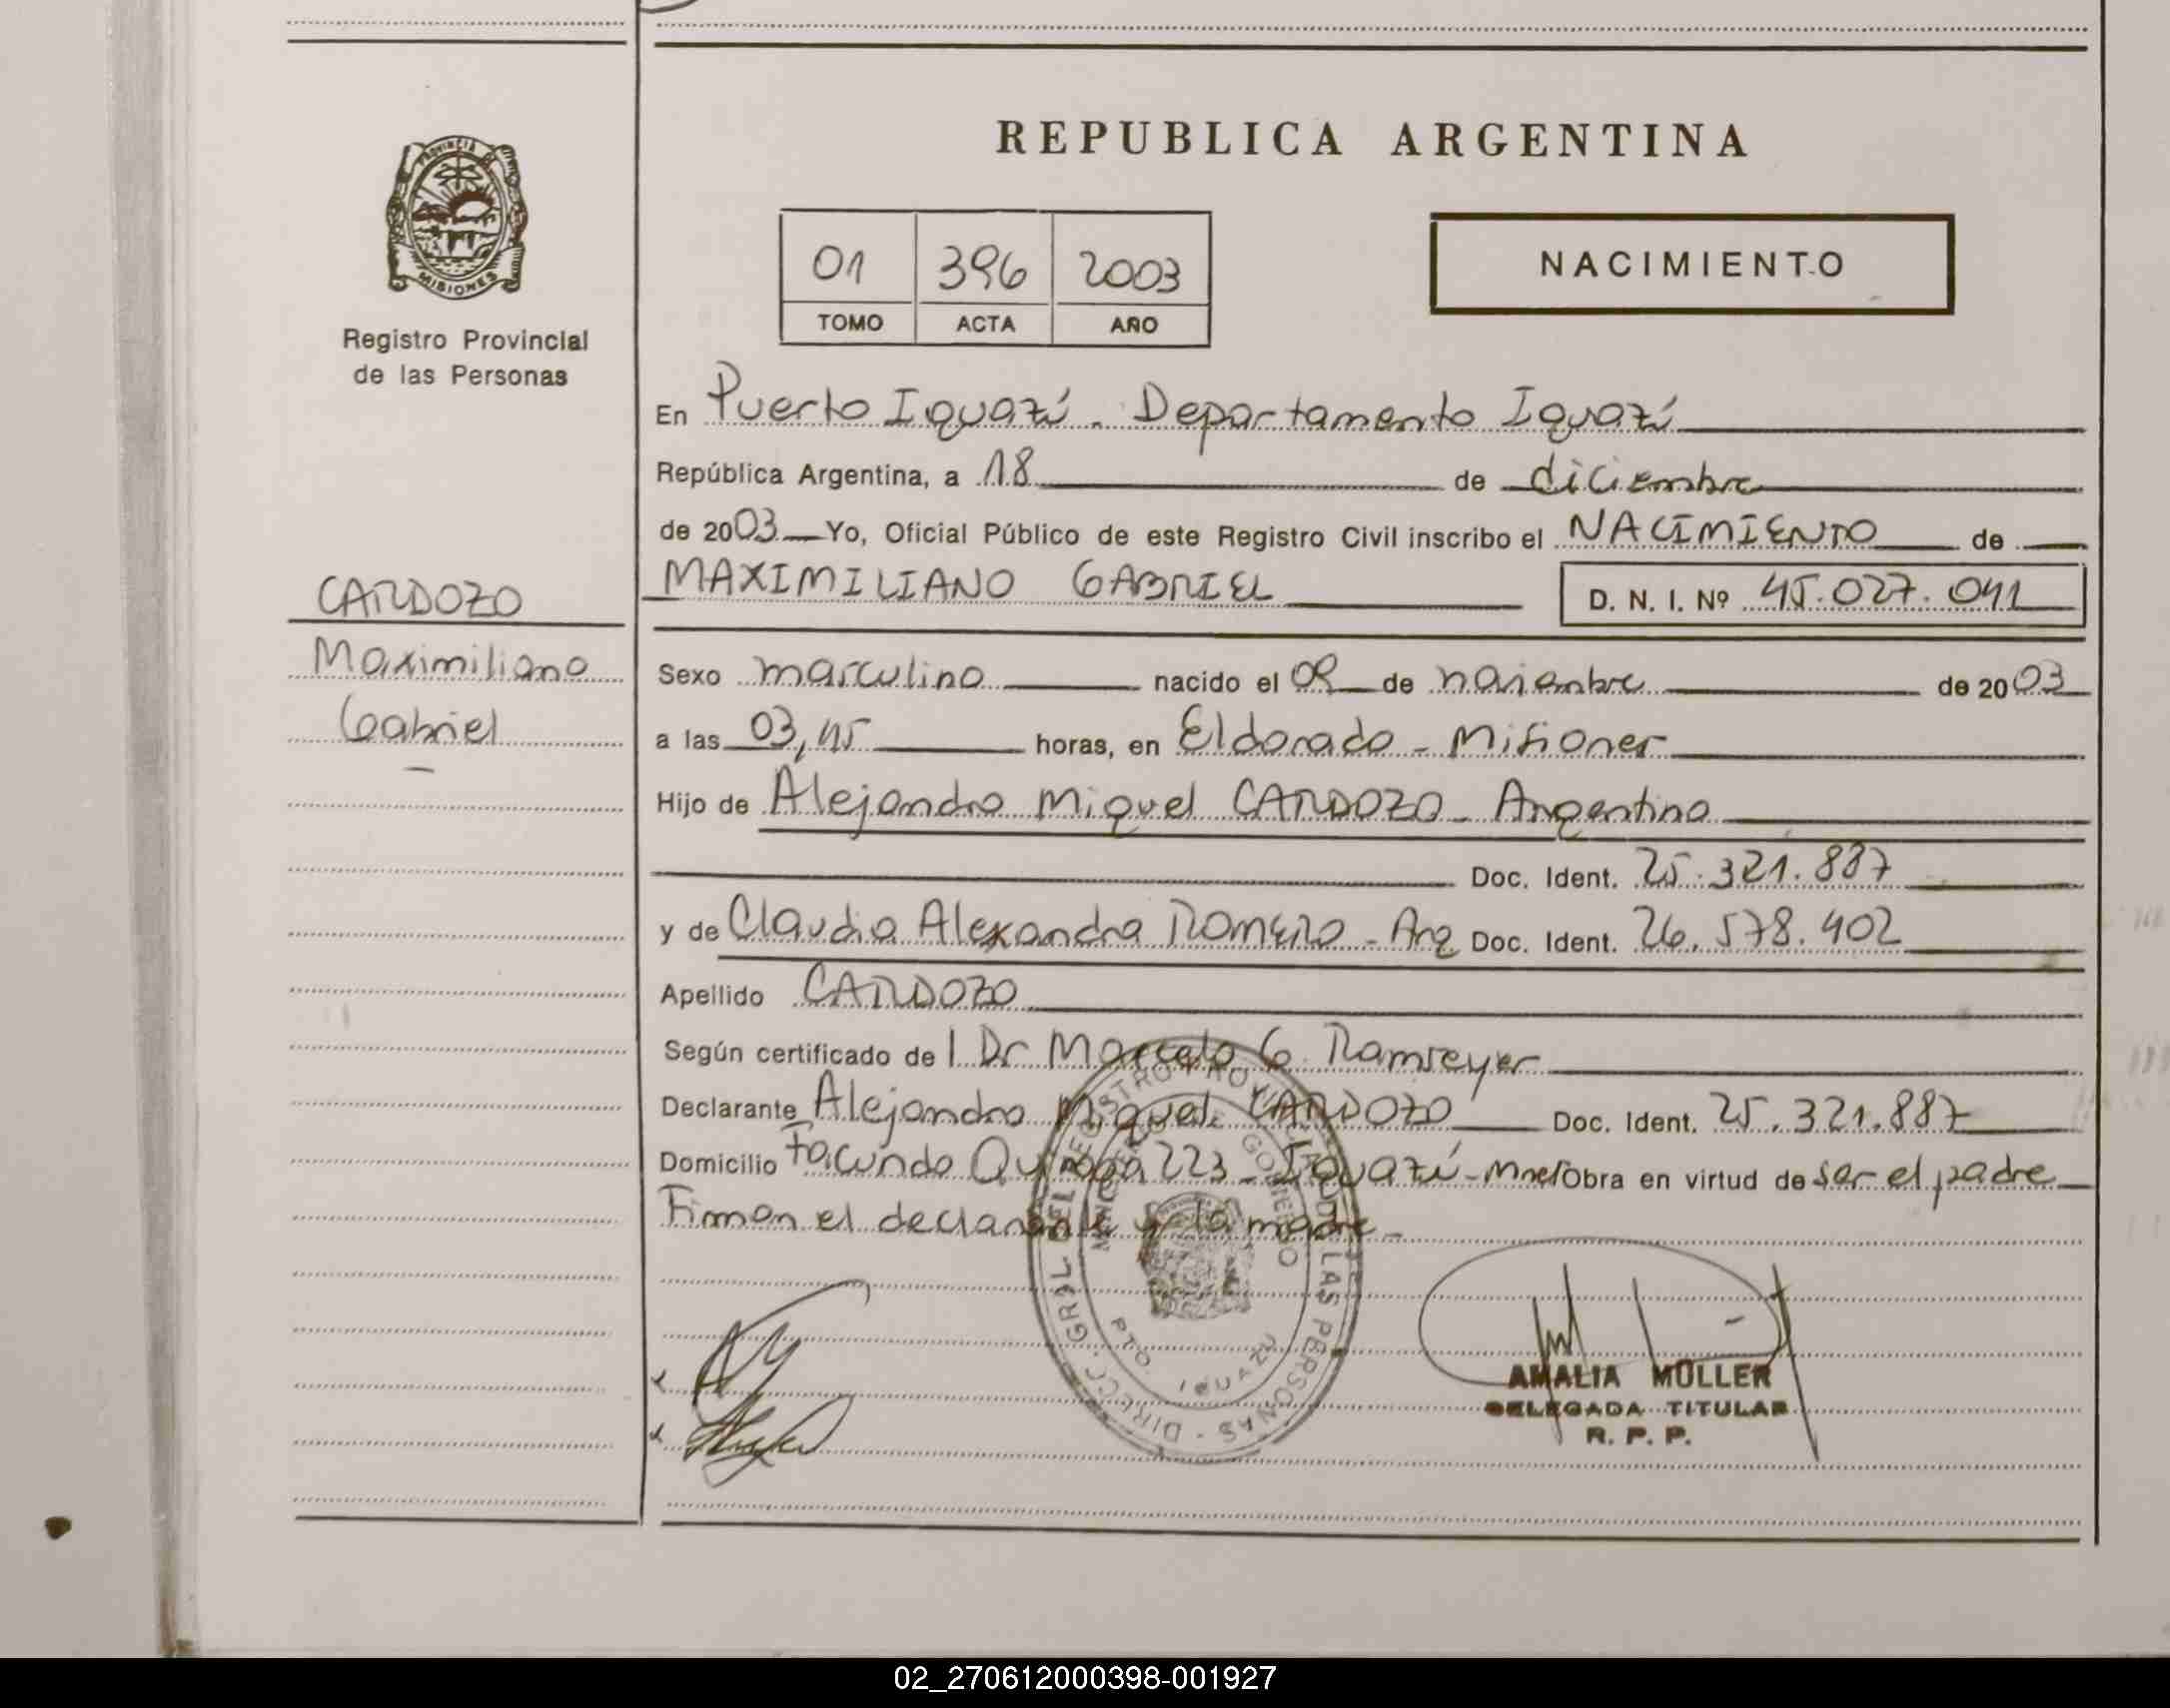 REPUBLICA ARGENTINA
PROVINCIA DE
MISIONES
Registro Provincial
de las Personas
01 396 2003
TOMO ACTA AÑO
NACIMIENTO
En Puerto Iguazú - Departamento Iguazú
República Argentina, a 18 de diciembre
de 2003 Yo, Oficial Público de este Registro Civil inscribo el NACIMIENTO de
MAXIMILIANO GABRIEL D. N. I. Nº 45.027.041
CARDOZO
Maximiliano
Gabriel
Sexo masculino nacido el 09 de noviembre de 2003
a las 03,45 horas, en Eldorado - Misiones
Hijo de Alejandro Miguel CARDOZO - Argentino
Doc. Ident. 25.321.887
y de Claudia Alexandra ROMERO - Arg Doc. Ident. 26.578.402
Apellido CARDOZO
Según certificado del Dr Marcelo G. Ramseyer
Declarante Alejandro Miguel CARDOZO Doc. Ident. 25.321.887
Domicilio Facundo Quiroga 223 - Iguazú - Mnes Obra en virtud de ser el padre
Firman el declarante y la madre -
DIRECC. GRAL DEL REGISTRO PROVINCIAL DE LAS PERSONAS
GOBIERNO
PTO. IGUAZU
AMALIA MÜLLER
DELEGADA TITULAR
R. P. P.
02_270612000398-001927